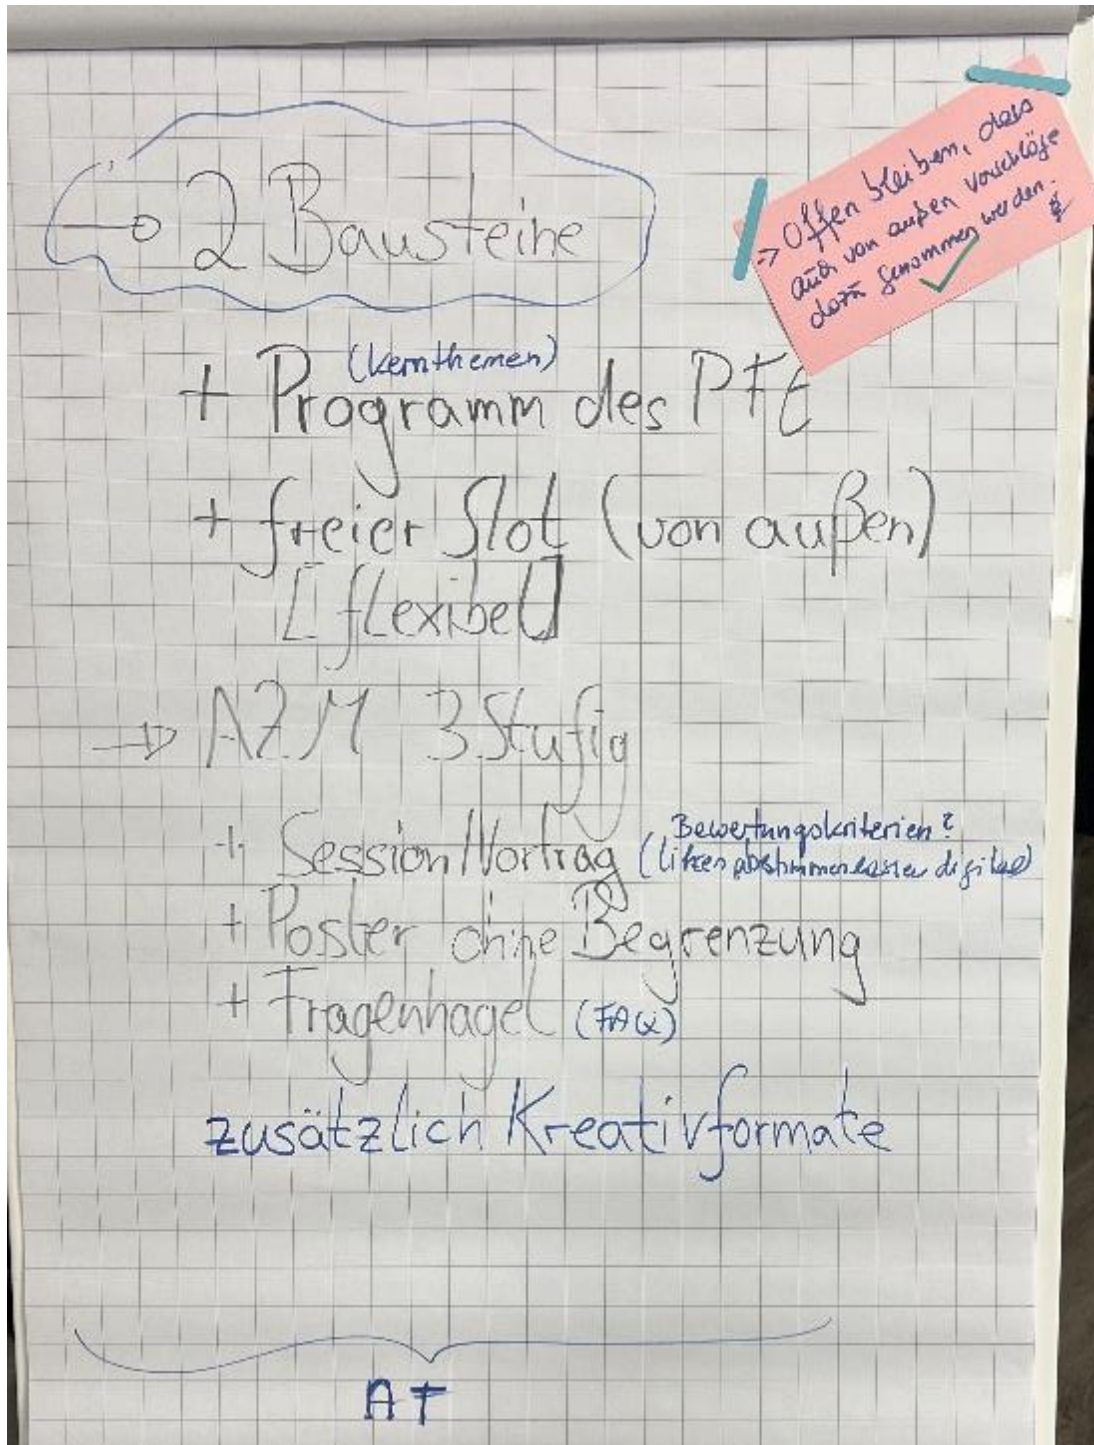 → 2 Bausteine
-> Offen bleiben, dass
auch von außen Vorschläge
dazu genommen werden.
(Kernthemen)
+ Programm des PFE
+ freier Slot (von außen)
[flexibel]
→ AZM 3 Stufig
+ Session/Vortrag
Bewertungskriterien?
(liken abstimmen lassen digital)
+ Poster ohne Begrenzung
+ Fragenhagel (FAQ)
zusätzlich Kreativformate
AT